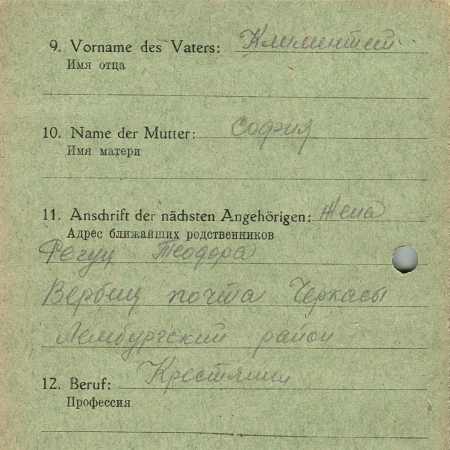 9. Vorname des Vaters: Климентий
Имя отца
10. Name der Mutter: София
Имя матери
11. Anschrift der nächsten Angehörigen: Жена
Адрес ближайших родственников
Фегуц Теодора
Вербиц почта Черкасы
Лембургский район
12. Beruf: Крестянин
Профессия